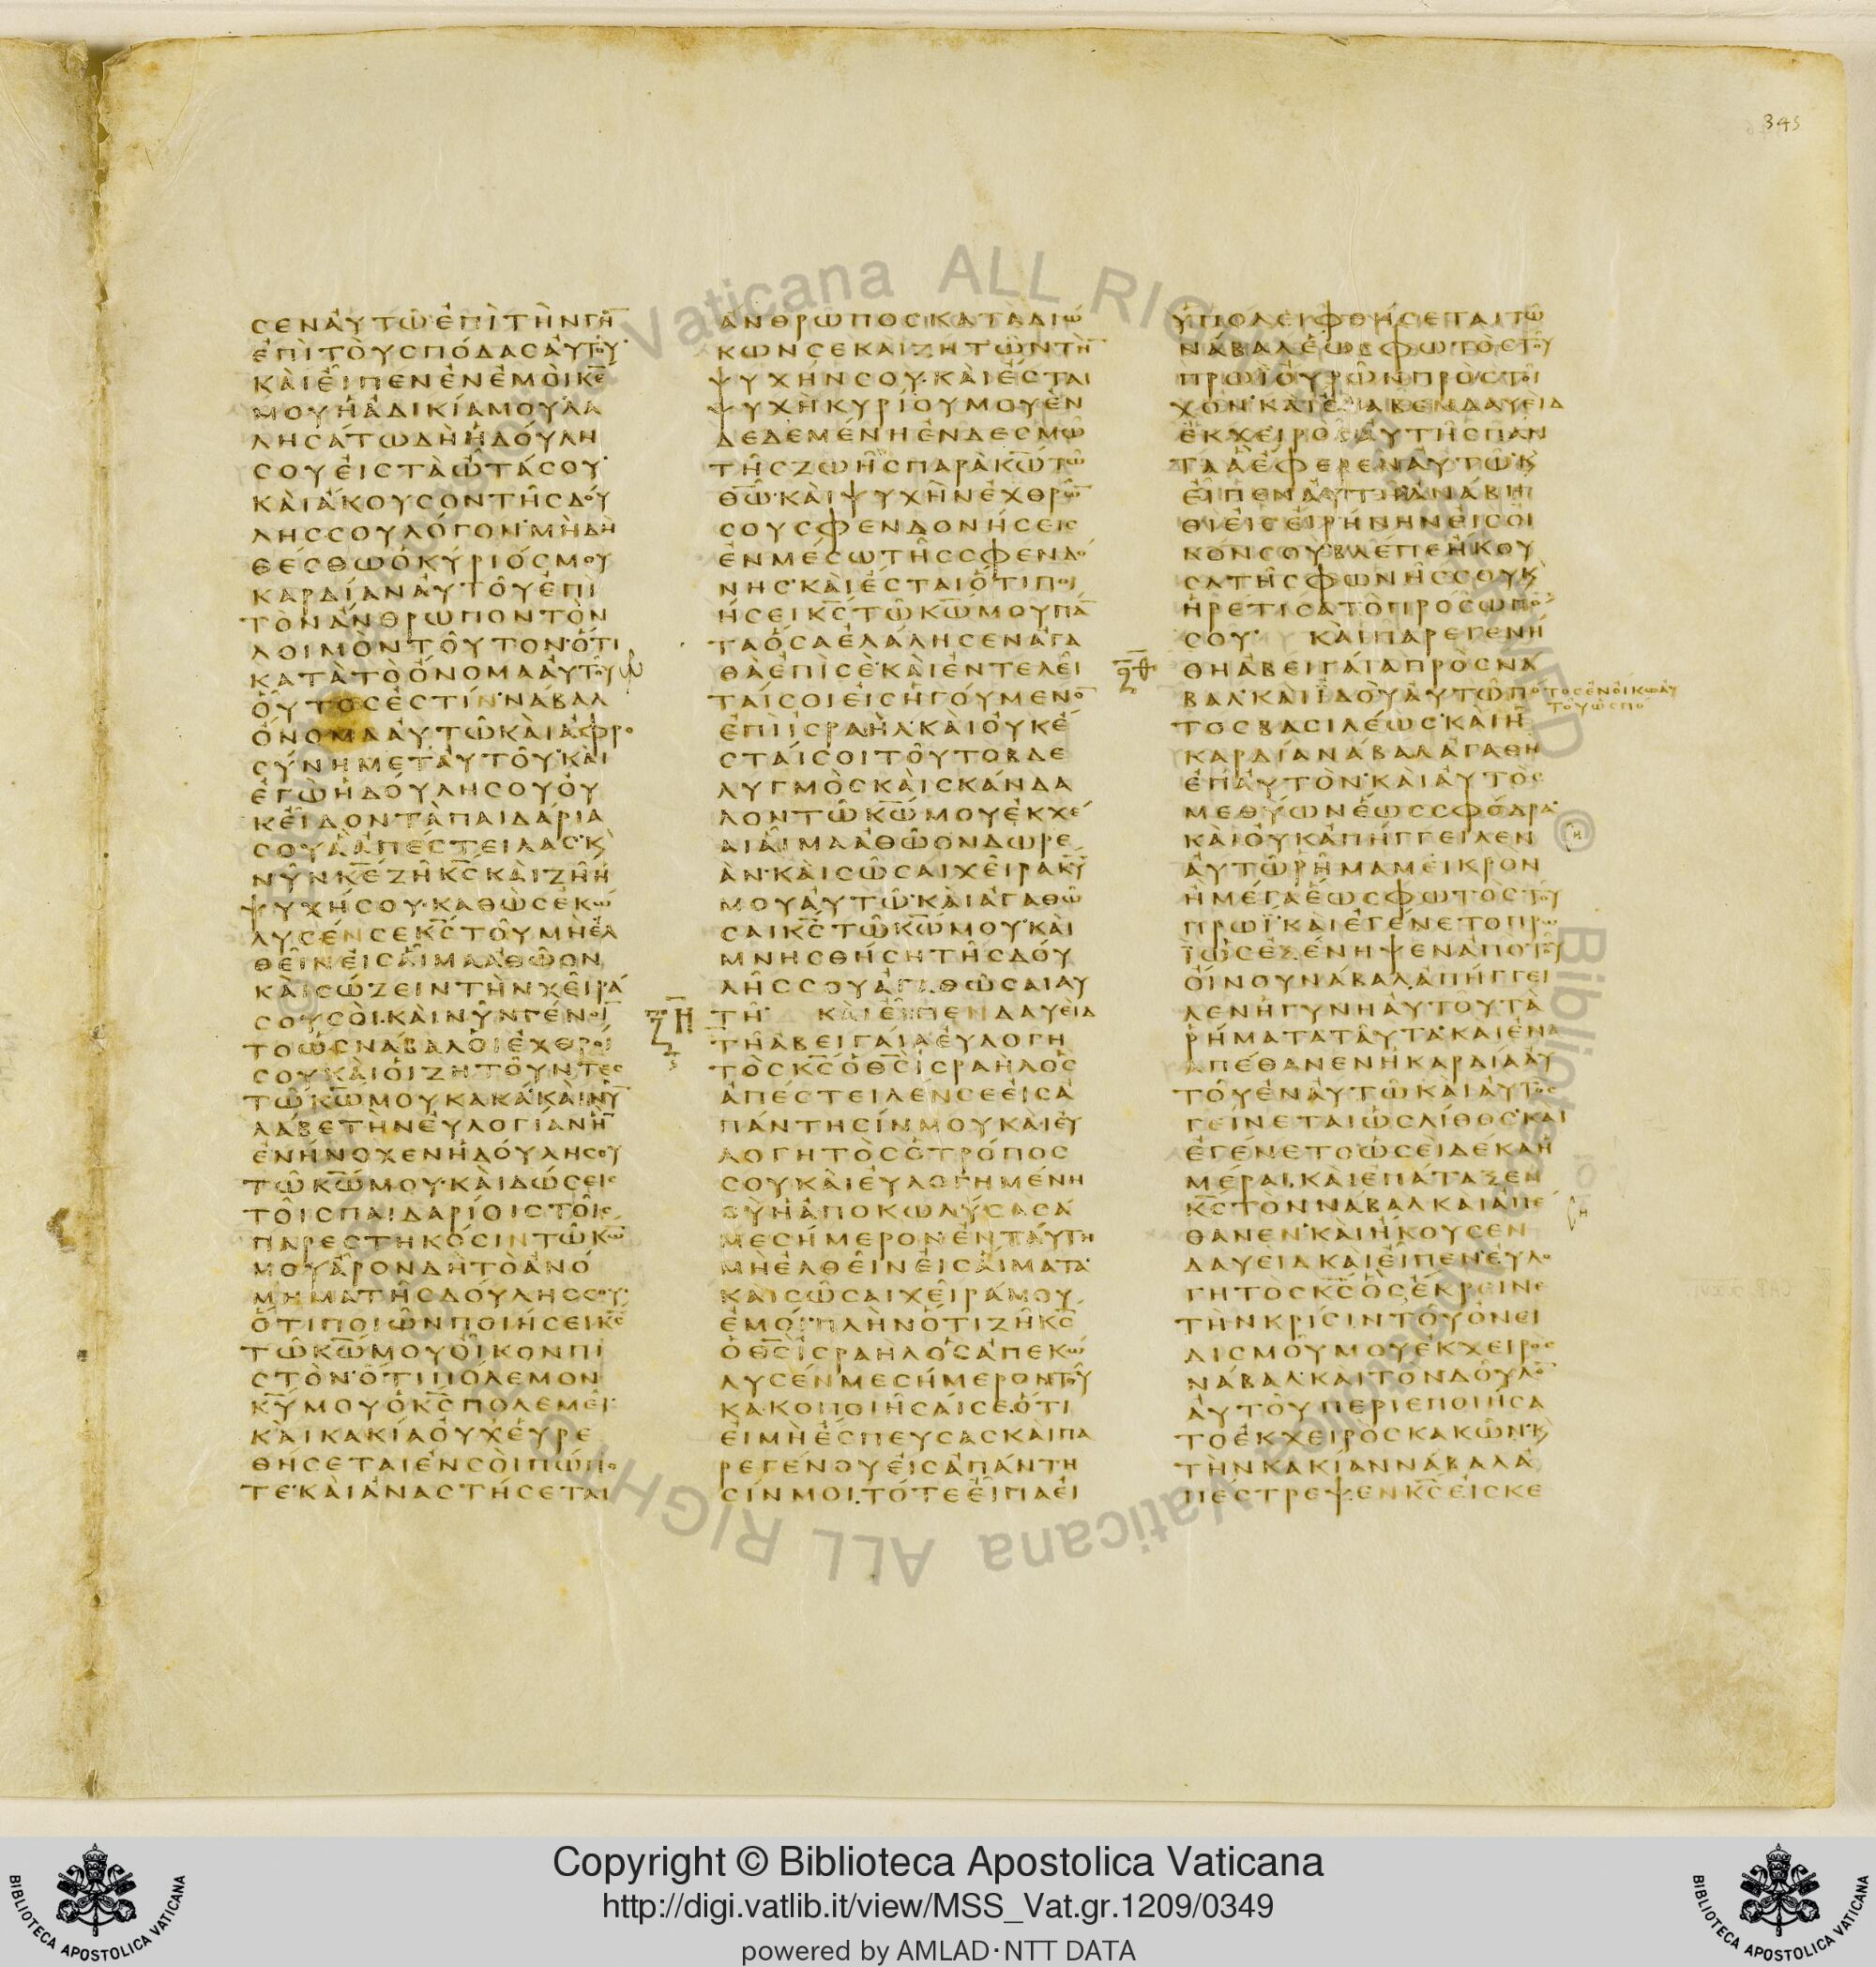 345
ϹΕΝΑΥΤΩΕΠΙΤΗΝΓΗ̅
ΕΠΙΤΟΥϹΠΟΔΑϹΑΥΤΟΥ
ΚΑΙΕΙΠΕΝΕΝΕΜΟΙΚ̅Ε̅
ΜΟΥΗΑΔΙΚΙΑΜΟΥΛΑ
ΛΗϹΑΤΩΔΗΗΔΟΥΛΗ
ϹΟΥΕΙϹΤΑΩΤΑϹΟΥ
ΚΑΙΑΚΟΥϹΟΝΤΗϹΔΟΥ
ΛΗϹϹΟΥΛΟΓΟΝ·ΜΗΔΗ
ΘΕϹΘΩΟΚΥΡΙΟϹΜΟΥ
ΚΑΡΔΙΑΝΑΥΤΟΥΕΠΙ
ΤΟΝΑΝΘΡΩΠΟΝΤΟΝ
ΛΟΙΜΟΝΤΟΥΤΟΝ·ΟΤΙ
ΚΑΤΑΤΟΟΝΟΜΑΑΥΤΟΥ
ΟΥΤΟϹΕϹΤΙΝ·ΝΑΒΑΛ
ΟΝΟΜΑΑΥΤΩΚΑΙΑΦΡΟ
ϹΥΝΗΜΕΤΑΥΤΟΥ·ΚΑΙ
ΕΓΩΗΔΟΥΛΗϹΟΥΟΥ
ΚΕΙΔΟΝΤΑΠΑΙΔΑΡΙΑ
ϹΟΥΑΑΠΕϹΤΕΙΛΑϹ·Κ
ΝΥΝΚ̅Ε̅ΖΗΚ̅Ϲ̅ΚΑΙΖΗΗ
ΨΥΧΗϹΟΥ·ΚΑΘΩϹΕΚΩ
ΛΥϹΕΝϹΕΚ̅Ϲ̅ΤΟΥΜΗΕΛ
ΘΕΙΝΕΙϹΑΙΜΑΑΘΩΟΝ
ΚΑΙϹΩΖΕΙΝΤΗΝΧΕΙΡΑ
ϹΟΥϹΟΙ·ΚΑΙΝΥΝΓΕΝΟΙ̅
ΤΟΩϹΝΑΒΑΛΟΙΕΧΘΡΟΙ
ϹΟΥΚΑΙΟΙΖΗΤΟΥΝΤΕϹ
ΤΩΚ̅Ω̅ΜΟΥΚΑΚΑ·ΚΑΙΝΥ̅
ΛΑΒΕΤΗΝΕΥΛΟΓΙΑΝΗ̅
ΕΝΗΝΟΧΕΝΗΔΟΥΛΗϹΟΥ
ΤΩΚ̅Ω̅ΜΟΥ·ΚΑΙΔΩϹΕΙϹ
ΤΟΙϹΠΑΙΔΑΡΙΟΙϹΤΟΙϹ
ΠΑΡΕϹΤΗΚΟϹΙΝΤΩΚ̅Ω̅
ΜΟΥΑΡΟΝΔΗΤΟΑΝΟ
ΜΗΜΑΤΗϹΔΟΥΛΗϹϹΟΥ·
ΟΤΙΠΟΙΩΝΠΟΙΗϹΕΙΚ̅Ϲ̅
ΤΩΚ̅Ω̅ΜΟΥΟΙΚΟΝΠΙ
ϹΤΟΝ·ΟΤΙΠΟΛΕΜΟΝ
Κ̅Υ̅ΜΟΥΟΚ̅Ϲ̅ΠΟΛΕΜΕΙ·
ΚΑΙΚΑΚΙΑΟΥΧΕΥΡΕ
ΘΗϹΕΤΑΙΕΝϹΟΙΠΩΠΟ
ΤΕ·ΚΑΙΑΝΑϹΤΗϹΕΤΑΙ
ΑΝΘΡΩΠΟϹΚΑΤΑΔΙΩ
ΚΩΝϹΕΚΑΙΖΗΤΩΝΤΗ̅
ΨΥΧΗΝϹΟΥ·ΚΑΙΕϹΤΑΙ
ΨΥΧΗΚΥΡΙΟΥΜΟΥΕΝ
ΔΕΔΕΜΕΝΗΕΝΔΕϹΜΩ
ΤΗϹΖΩΗϹΠΑΡΑΚ̅Ω̅ΤΩ
Θ̅Ω̅·ΚΑΙΨΥΧΗΝΕΧΘΡΩ̅
ϹΟΥϹΦΕΝΔΟΝΗϹΕΙϹ
ΕΝΜΕϹΩΤΗϹϹΦΕΝΔΟ
ΝΗϹ·ΚΑΙΕϹΤΑΙΟΤΙΠΟΙ
ΗϹΕΙΚ̅Ϲ̅ΤΩΚ̅Ω̅ΜΟΥΠΑ̅
ΤΑΟϹΑΕΛΑΛΗϹΕΝΑΓΑ
ΘΑΕΠΙϹΕ·ΚΑΙΕΝΤΕΛΕΙ
ΤΑΙϹΟΙΕΙϹΗΓΟΥΜΕΝΟ̅
ΕΠΙΙϹΡΑΗΛ·ΚΑΙΟΥΚΕ
ϹΤΑΙϹΟΙΤΟΥΤΟΒΔΕ
ΛΥΓΜΟϹΚΑΙϹΚΑΝΔΑ
ΛΟΝΤΩΚ̅Ω̅ΜΟΥΕΚΧΕ
ΑΙΑΙΜΑΑΘΩΟΝΔΩΡΕ
ΑΝ·ΚΑΙϹΩϹΑΙΧΕΙΡΑΚ̅Υ̅
ΜΟΥΑΥΤΩ·ΚΑΙΑΓΑΘΩ
ϹΑΙΚ̅Ϲ̅ΤΩΚ̅Ω̅ΜΟΥ·ΚΑΙ
ΜΝΗϹΘΗϹΗΤΗϹΔΟΥ
ΛΗϹϹΟΥΑΓΑΘΩϹΑΙΑΥ
ΤΗ· ΚΑΙΕΙΠΕΝΔΑΥΕΙΔ
ΤΗΑΒΕΙΓΑΙΑΕΥΛΟΓΗ
ΤΟϹΚ̅Ϲ̅ΟΘ̅Ϲ̅ΙϹΡΑΗΛΟϹ
ΑΠΕϹΤΕΙΛΕΝϹΕΕΙϹΑ
ΠΑΝΤΗϹΙΝΜΟΥΚΑΙΕΥ
ΛΟΓΗΤΟϹΟΤΡΟΠΟϹ
ϹΟΥΚΑΙΕΥΛΟΓΗΜΕΝΗ
ϹΥΗΑΠΟΚΩΛΥϹΑϹΑ
ΜΕϹΗΜΕΡΟΝΕΝΤΑΥΤΗ
ΜΗΕΛΘΕΙΝΕΙϹΑΙΜΑΤΑ·
ΚΑΙϹΩϹΑΙΧΕΙΡΑΜΟΥ
ΕΜΟΙ·ΠΛΗΝΟΤΙΖΗΚ̅Ϲ̅
ΟΘ̅Ϲ̅ΙϹΡΑΗΛΟϹΑΠΕΚΩ
ΛΥϹΕΝΜΕϹΗΜΕΡΟΝΤΟΥ
ΚΑΚΟΠΟΙΗϹΑΙϹΕ·ΟΤΙ
ΕΙΜΗΕϹΠΕΥϹΑϹΚΑΙΠΑ
ΡΕΓΕΝΟΥΕΙϹΑΠΑΝΤΗ
ϹΙΝΜΟΙ·ΤΟΤΕΕΙΠΑΕΙ
ΥΠΟΛΕΙΦΘΗϹΕΤΑΙΤΩ
ΝΑΒΑΛΕΩϹΦΩΤΟϹΤΟΥ
ΠΡΩΙΟΥΡΩΝΠΡΟϹΤΟΙ
ΧΟΝ·ΚΑΙΕΛΑΒΕΝΔΑΥΕΙΔ
ΕΚΧΕΙΡΟϹΑΥΤΗϹΠΑΝ
ΤΑΑΕΦΕΡΕΝΑΥΤΩ·Κ
ΕΙΠΕΝΑΥΤΗΑΝΑΒΗ
ΘΙΕΙϹΕΙΡΗΝΗΝΕΙϹΟΙ
ΚΟΝϹΟΥ·ΒΛΕΠΕΗΚΟΥ
ϹΑΤΗϹΦΩΝΗϹϹΟΥΚ
ΗΡΕΤΙϹΑΤΟΠΡΟϹΩΠΟ̅
ϹΟΥ· ΚΑΙΠΑΡΕΓΕΝΗ
ΘΗΑΒΕΙΓΑΙΑΠΡΟϹΝΑ
ΒΑΛ·ΚΑΙΙΔΟΥΑΥΤΩΠΟ
ΤΟϹΕΝΟΙΚΩΑΥ
ΤΟΥΩϹΠΟ
ΤΟϹΒΑϹΙΛΕΩϹ·ΚΑΙΗ
ΚΑΡΔΙΑΝΑΒΑΛΑΓΑΘΗ
ΕΠΑΥΤΟΝ·ΚΑΙΑΥΤΟϹ
ΜΕΘΥΩΝΕΩϹϹΦΟΔΡΑ·
ΚΑΙΟΥΚΑΠΗΓΓΕΙΛΕΝ
ΑΥΤΩΡΗΜΑΜΕΙΚΡΟΝ
ΗΜΕΓΑΕΩϹΦΩΤΟϹΤΟΥ
ΠΡΩΪ·ΚΑΙΕΓΕΝΕΤΟΠΡΩ
ΪΩϹΕΞΕΝΗΨΕΝΑΠΟΤΟΥ
ΟΙΝΟΥΝΑΒΑΛΑΠΗΓΓΕΙ
ΛΕΝΗΓΥΝΗΑΥΤΟΥΤΑ
ΡΗΜΑΤΑΤΑΥΤΑ·ΚΑΙΕΝΑ
ΑΠΕΘΑΝΕΝΗΚΑΡΔΙΑΑΥ
ΤΟΥΕΝΑΥΤΩΚΑΙΑΥΤΟϹ
ΓΕΙΝΕΤΑΙΩϹΛΙΘΟϹ·ΚΑΙ
ΕΓΕΝΕΤΟΩϹΕΙΔΕΚΑΗ
ΜΕΡΑΙ·ΚΑΙΕΠΑΤΑΞΕΝ
Κ̅Ϲ̅ΤΟΝΝΑΒΑΛΚΑΙΑΠΕ
ΘΑΝΕΝ·ΚΑΙΗΚΟΥϹΕΝ
ΔΑΥΕΙΔΚΑΙΕΙΠΕΝ·ΕΥΛΟ
ΓΗΤΟϹΚ̅Ϲ̅ΟϹΕΚΡΕΙΝΕ
ΤΗΝΚΡΙϹΙΝΤΟΥΟΝΕΙ
ΔΙϹΜΟΥΜΟΥΕΚΧΕΙΡΟϹ
ΝΑΒΑΛ·ΚΑΙΤΟΝΔΟΥΛΟ̅
ΑΥΤΟΥΠΕΡΙΕΠΟΙΗϹΑ
ΤΟΕΚΧΕΙΡΟϹΚΑΚΩΝ·Κ
ΤΗΝΚΑΚΙΑΝΝΑΒΑΛΑ
ΠΕϹΤΡΕΨΕΝΚ̅Ϲ̅ΕΙϹΚΕ
Copyright © Biblioteca Apostolica Vaticana
http://digi.vatlib.it/view/MSS_Vat.gr.1209/0349
powered by AMLAD·NTT DATA
BIBLIOTECA APOSTOLICA VATICANA
BIBLIOTECA APOSTOLICA VATICANA